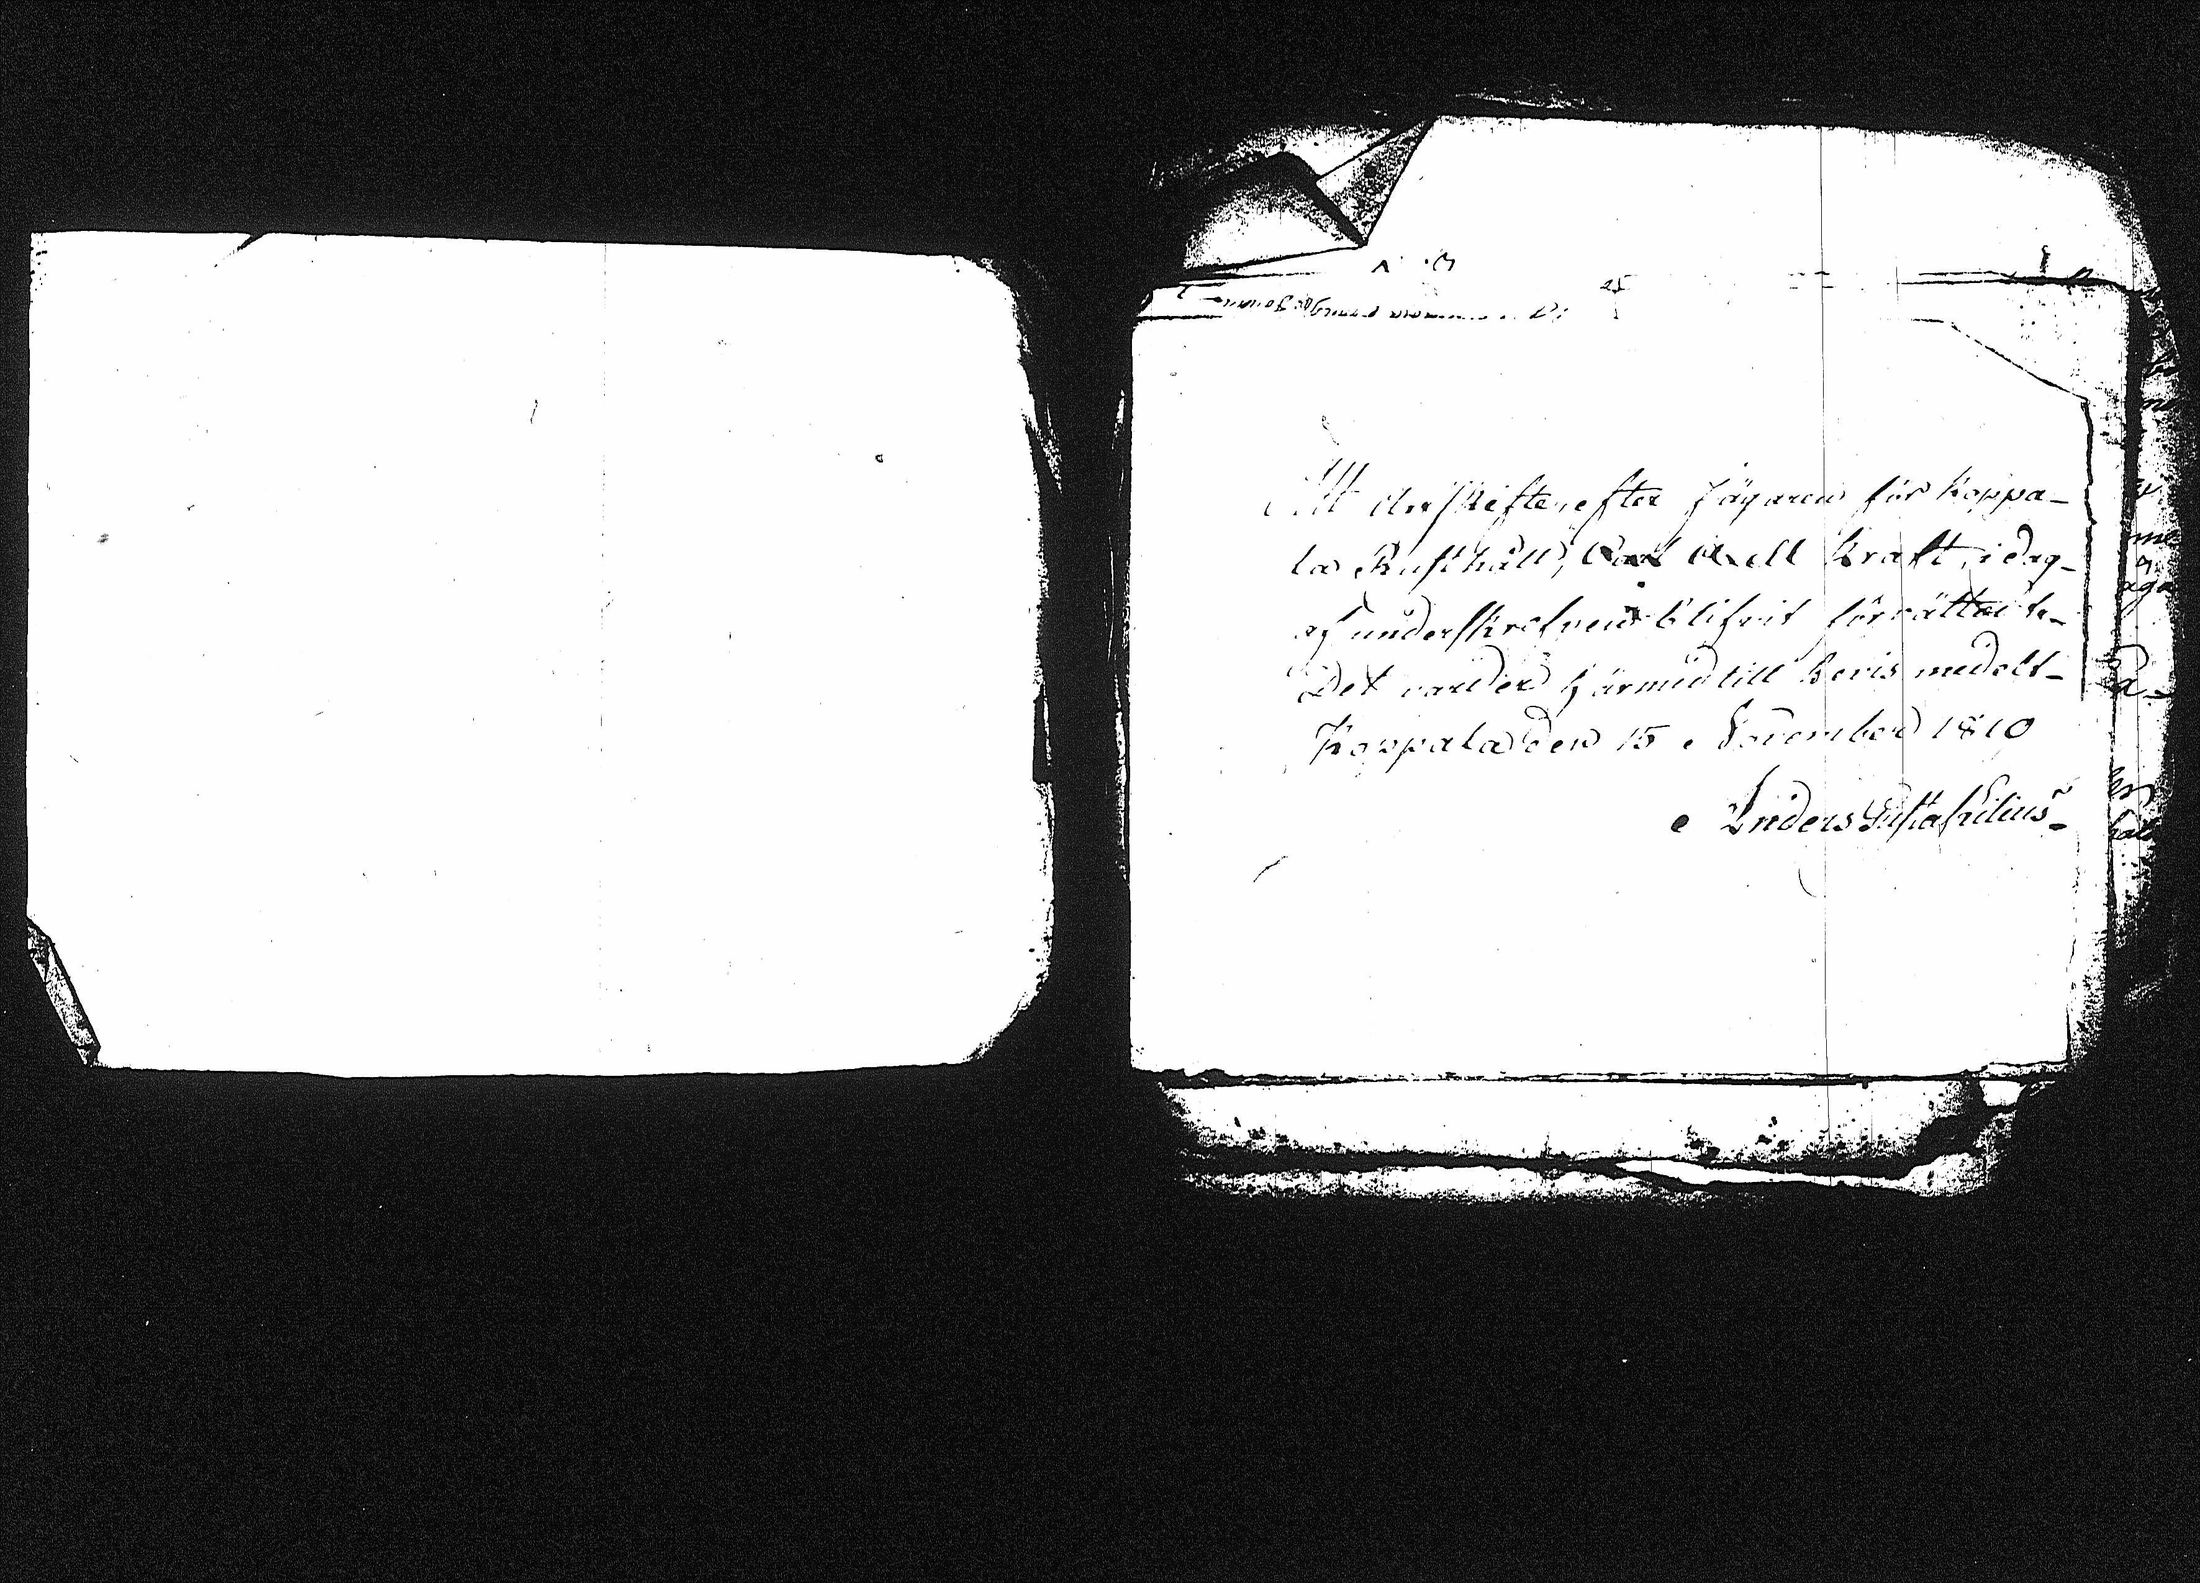 Att Arfskifte, efter Jägaren för Koppa-
la Rusthåll, Carl Axell Kraft, i dag
af underskrefven blifvit förrättat.
Det varder härmed till bevis medelt-
Koppala den 15 November 1810
Anders Gustaf Kilius